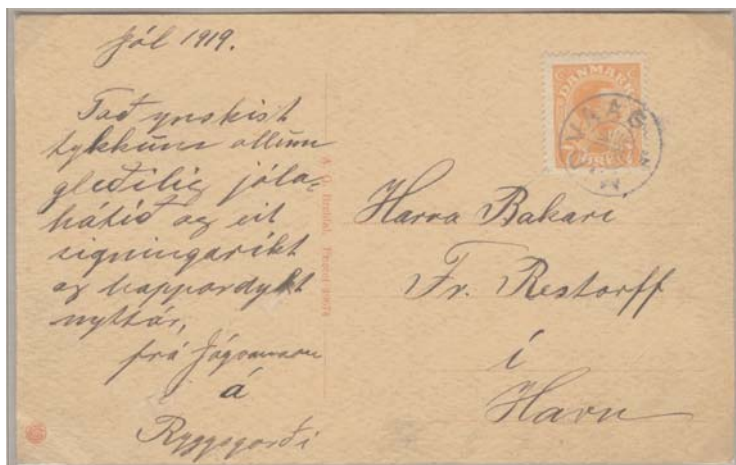 Jól 1919.
Tað ynskist
tykkum ollum
gleðilig jóla-
hátíð og eit
signingaríkt
og happardykt
nyttár,
frá Jógvanmann
á
Ryggsgørði
DANMARK
ØRE
VAAG
Harra Bakari
Fr. Restorff
í
Havn